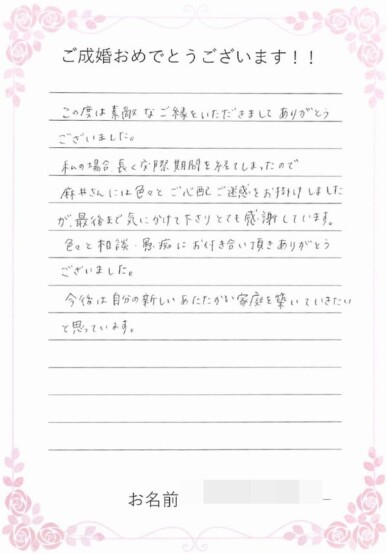 ご成婚おめでとうございます！！
この度は素敵なご縁をいただきましてありがとう
ございました。
私の場合長く交際期間を経てしまったので
麻井さんには色々とご心配ご迷惑をお掛けしました
が、最後まで気にかけて下さりとても感謝しています。
色々と相談・愚痴にお付き合い頂きありがとう
ございました。
今後は自分の新しいあたたかい家庭を築いていきたい
と思っています。
お名前